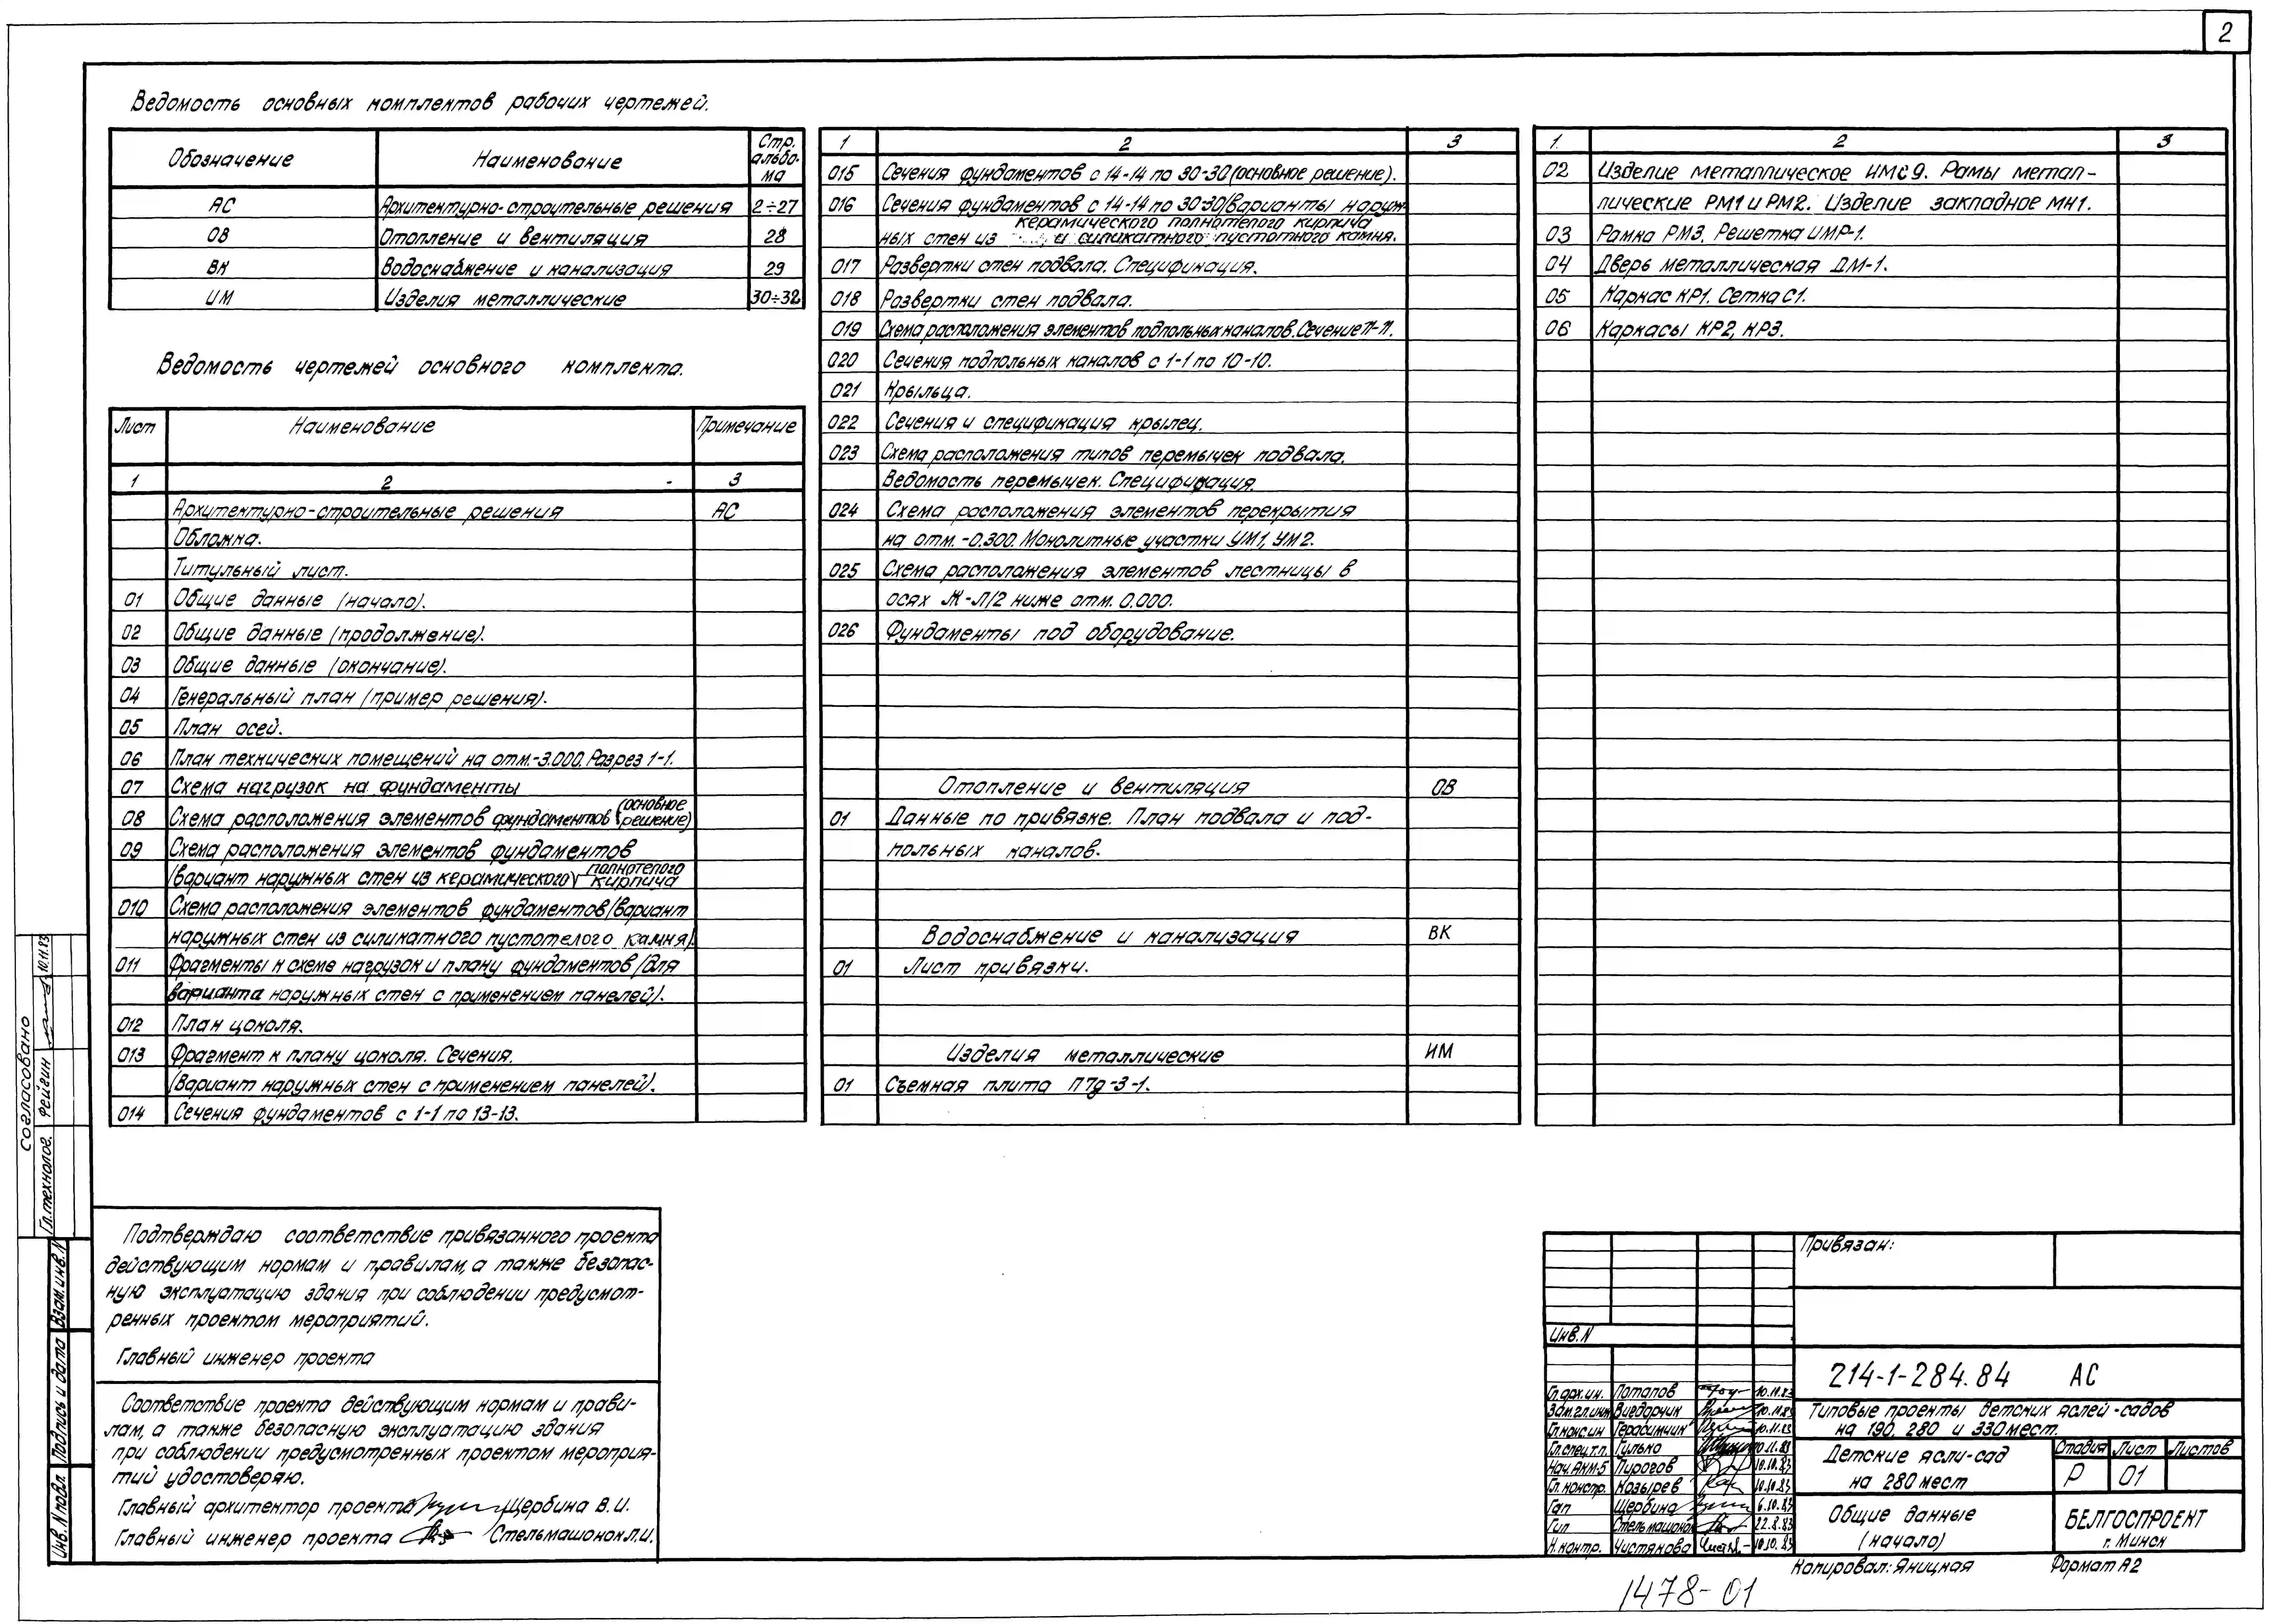 2
Ведомость основных комплектов рабочих чертежей.
Обозначение Наименование Стр. альбо-ма
АС Архитектурно-строительные решения 2÷27
ОВ Отопление и вентиляция 28
ВК Водоснабжение и канализация 29
ИМ Изделия металлические 30÷32
Ведомость чертежей основного комплекта.
Лист Наименование Примечание
1 2 3
Архитектурно-строительные решения АС
Обложка.
Титульный лист.
01 Общие данные (начало).
02 Общие данные (продолжение).
03 Общие данные (окончание).
04 Генеральный план (пример решения).
05 План осей.
06 План технических помещений на отм.-3.000. Разрез 1-1.
07 Схема нагрузок на фундаменты
08 Схема расположения элементов фундаментов (основное решение)
09 Схема расположения элементов фундаментов
(вариант наружных стен из керамического полнотелого кирпича
010 Схема расположения элементов фундаментов (вариант
наружных стен из силикатного пустотелого камня).
011 Фрагменты к схеме нагрузок и плану фундаментов (для
варианта наружных стен с применением панелей).
012 План цоколя.
013 Фрагмент к плану цоколя. Сечения.
(Вариант наружных стен с применением панелей).
014 Сечения фундаментов с 1-1 по 13-13.
1 2 3
015 Сечения фундаментов с 14-14 по 30-30 (основное решение).
016 Сечения фундаментов с 14-14 по 30-30 (варианты наруж-
керамического полнотелого кирпича
ных стен из и силикатного пустотного камня.
017 Развертки стен подвала. Спецификация.
018 Развертки стен подвала.
019 Схема расположения элементов подпольных каналов. Сечение 11-11.
020 Сечения подпольных каналов с 1-1 по 10-10.
021 Крыльца.
022 Сечения и спецификация крылец.
023 Схема расположения типов перемычек подвала.
Ведомость перемычек. Спецификация.
024 Схема расположения элементов перекрытия
на отм. -0.300. Монолитные участки УМ1, УМ2.
025 Схема расположения элементов лестницы в
осях Ж-Л/2 ниже отм. 0.000.
026 Фундаменты под оборудование.
Отопление и вентиляция ОВ
01 Данные по привязке. План подвала и под-
польных каналов.
Водоснабжение и канализация ВК
01 Лист привязки.
Изделия металлические ИМ
01 Съемная плита П7д-3-1.
1. 2 3
02 Изделие металлическое ИМС9. Рамы метал-
лические РМ1 и РМ2. Изделие закладное МН1.
03 Рамка РМ3. Решетка ИМР-1.
04 Дверь металлическая ДМ-1.
05 Каркас КР1. Сетка С1.
06 Каркасы КР2, КР3.
Согласовано
Гл.технолог. Фейгин 10.11.83
Взам.инв.N
Подпись и дата
Инв.N подл.
Подтверждаю соответствие привязанного проекта
действующим нормам и правилам, а также безопас-
ную эксплуатацию здания при соблюдении предусмот-
ренных проектом мероприятий.
Главный инженер проекта
Соответствие проекта действующим нормам и прави-
лам, а также безопасную эксплуатацию здания
при соблюдении предусмотренных проектом мероприя-
тий удостоверяю.
Главный архитектор проекта Щербина В.И.
Главный инженер проекта Стельмашонок Л.И.
Привязан:
Инв.N
Гл.арх.ин. Потапов 10.11.83
Зам.гл.инж Вигдорчик 10.11.83
Гл.конс.ин Герасимчик 10.11.83
Гл.спец.т.п. Гулько 10.11.83
Нач.АКМ-5 Пирогов 10.10.83
Гл. констр. Козырев 10.10.83
Гап Щербина 6.10.83
Гип Стельмашонок 22.8.83
Н.контр. Чистякова 10.10.83
214-1-284.84 АС
Типовые проекты детских яслей-садов
на 190, 280 и 330 мест.
Детские ясли-сад
на 280 мест
Стадия Лист Листов
Р 01
Общие данные
(начало)
БЕЛГОСПРОЕКТ
г. Минск
Копировал: Яницкая Формат А2
1478-01